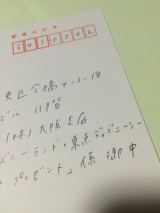 郵便はがき
5410042
東区今橋4-3-18
ビル 11階
(株)大阪支店
ズニーランド・東京ディズニーシー
プレゼント」係 御中